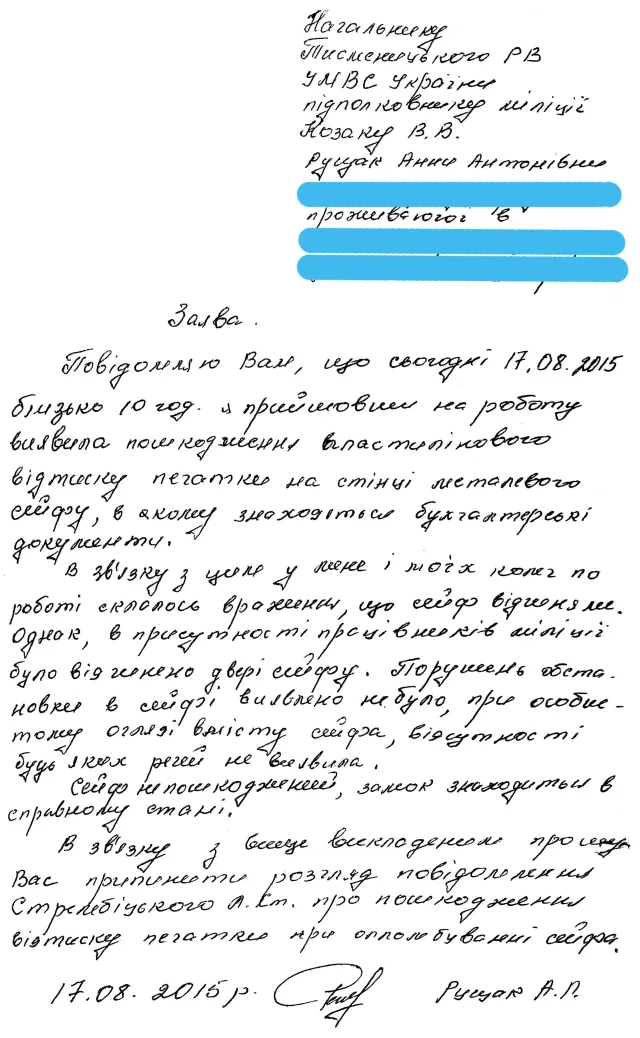 Начальнику
Тисменицького РВ
УМВС України
підполковнику міліції
Козаку В.В.
Рущак Анни Антонівни
проживаючої в
Заява.
Повідомляю Вам, що сьогодні 17.08.2015
близько 10 год. я прийшовши на роботу
виявила пошкодження пластилінового
відтиску печатки на стінці металевого
сейфу, в якому знаходяться бухгалтерські
документи.
В зв'язку з цим у мене і моїх колег по
роботі склалось враження, що сейф відчиняли.
Однак, в присутності працівників міліції
було відчинено двері сейфу. Порушень обста-
новки в сейфі виявлено не було, при особис-
тому огляді вмісту сейфа, відсутності
будь яких речей не виявила.
Сейф не пошкоджений, замок знаходиться в
справному стані.
В зв'язку з вище викладеним прошу
Вас припинити розгляд повідомлення
Стрембіцького Л.Ст. про пошкодження
відтиску печатки при опломбуванні сейфа.
17.08.2015 р. Рущак А.